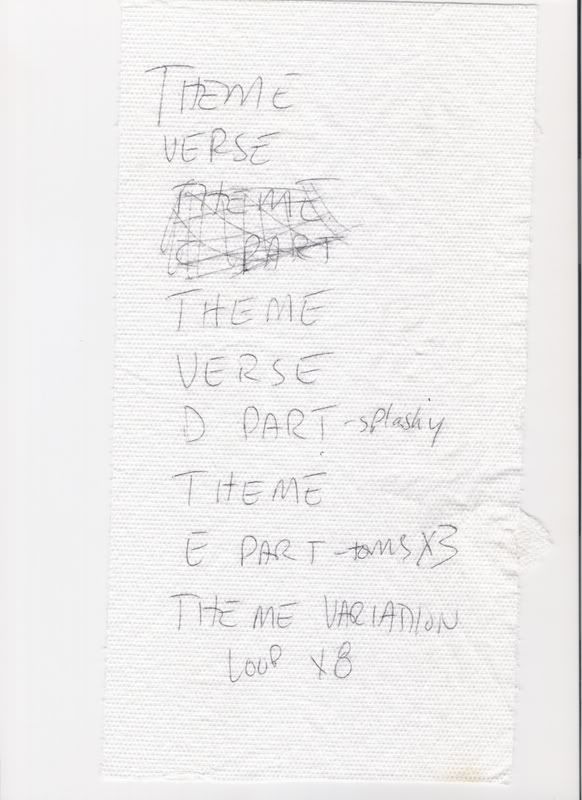 THEME
VERSE
THEME
C PART
THEME
VERSE
D PART - splashy
THEME
E PART - toms X3
THEME VARIATION
LOOP X8